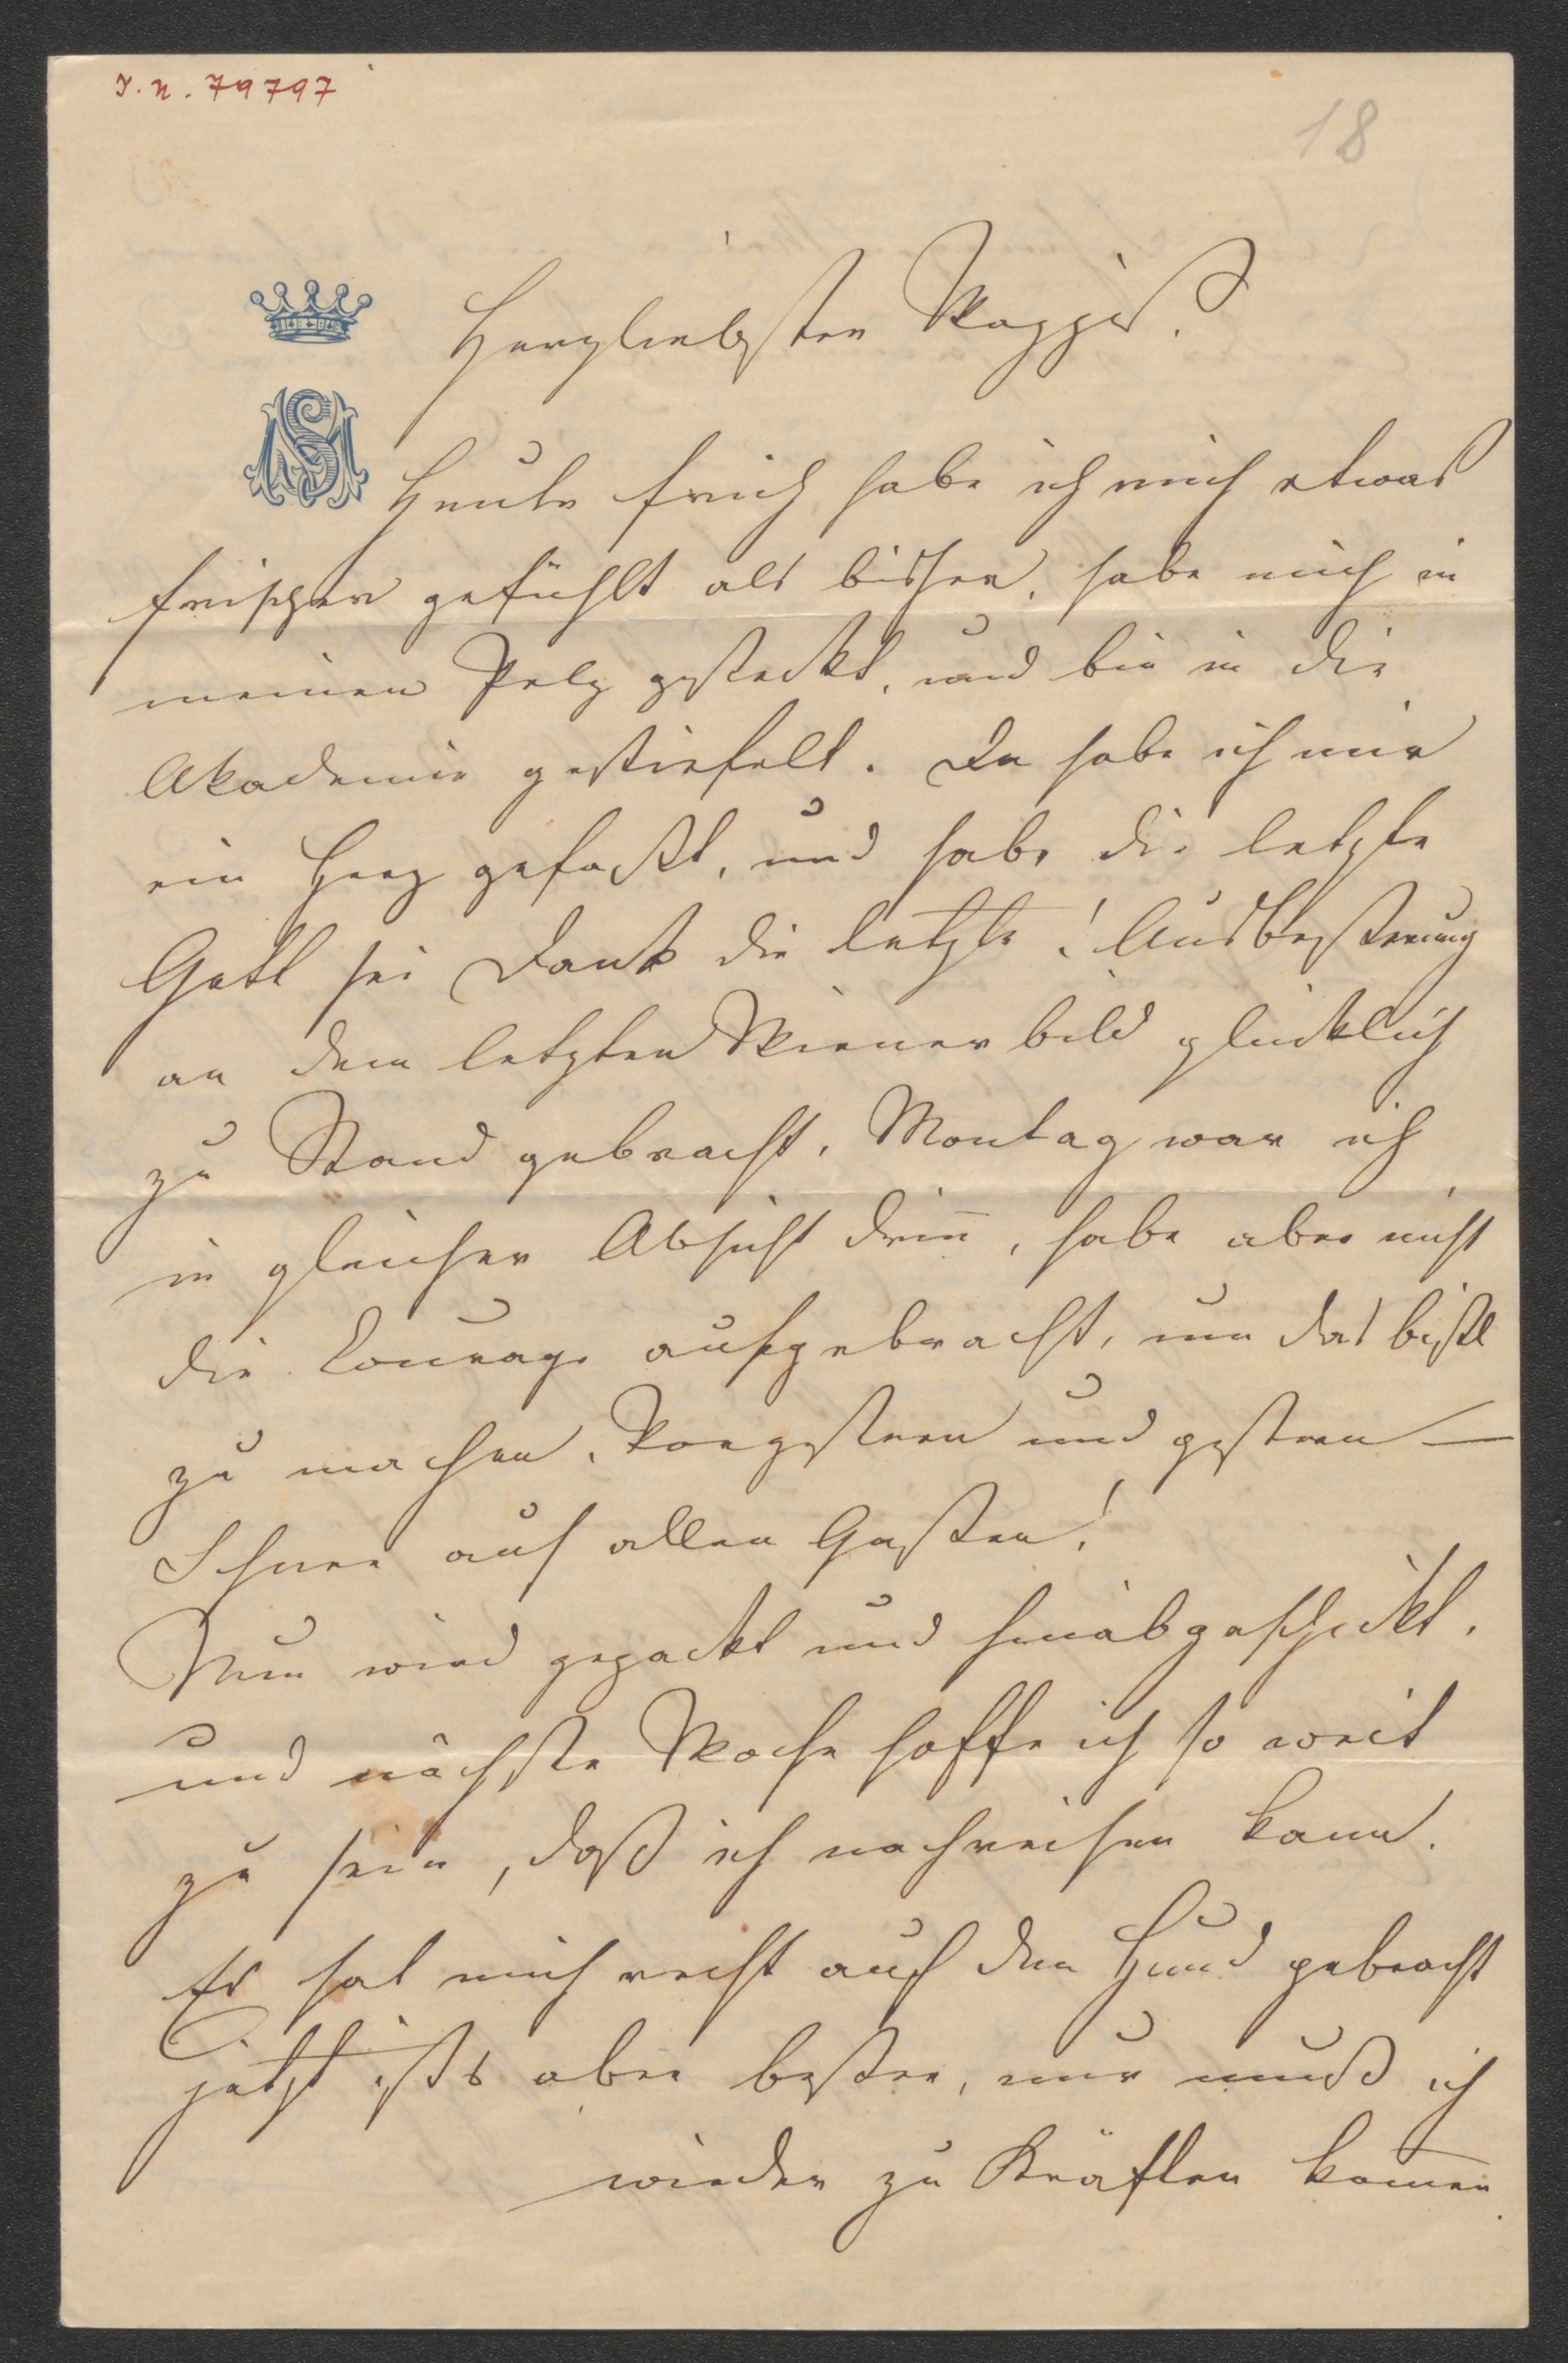 I. N. 79797
18
Herzliebster Waggis!
Heute früh habe ich mich etwas
frischer gefühlt als bisher, habe mich in
meinen Pelz gesteckt, und bin in die
Akademie gestiefelt. Da habe ich mir
ein Herz gefaßt, und habe die letzte
Gott sei Dank die letzte! Ausbesserung
an dem letzten Wienerbild glücklich
zu Stand gebracht. Montag war ich
in gleicher Absicht drin̅, habe aber nicht
die Courage aufgebracht, um das bißl
zu machen. Vorgestern und gestern —
Schnee auf allen Gassen!
Nun wird gepackt und hinabgeschickt,
und nächste Woche hoffe ich so weit
zu sein, daß ich nachreisen kann.
Es hat mich recht auf den Hund gebracht
jetzt ists aber besser, nur muß ich
wieder zu Kräften kom̅en.